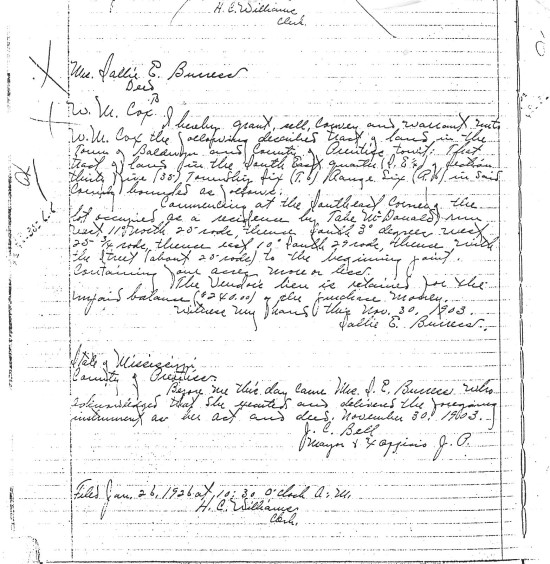 H. C. Williams
Clerk.
Mrs. Sallie E. Burress
Deed
To
W. M. Cox.
I hereby grant, sell, convey and warrant unto
W. M. Cox the following described tract of land in the
Town of Baldwyn and County of Prentiss towit: That
tract of land in the South East quarter (S.E¼) of section
thirty five (35) Township Six (T.6) Range Six (R.6) in said
County bounded as follows.
Commencing at the Southeast Corner of the
lot occupied as a residence by Tabe McDonald run
west 11° north 20 rods, thence South 3° degrees west
25 ¾ rods, thence east 10° South 29 rods, thence with
the Street (about 20 rods) to the beginning point.
Containing four acres more or less.
The Vendors lien is retained for the
unpaid balance ($240.00) of the purchase money.
Witness my hand this Nov. 30, 1903.
Sallie E. Burress.
State of Mississippi
County of Prentiss
Before me this day came Mrs. S. E. Burress who
acknowledged that she executed and delivered the foregoing
instrument as her act and deed. November 30, 1903.
J. C. Bell
Mayor & Ex officio J. P.
Filed Jan. 26, 1926 at 10:30 O'clock A.M.
H. C. Williams
Clerk.